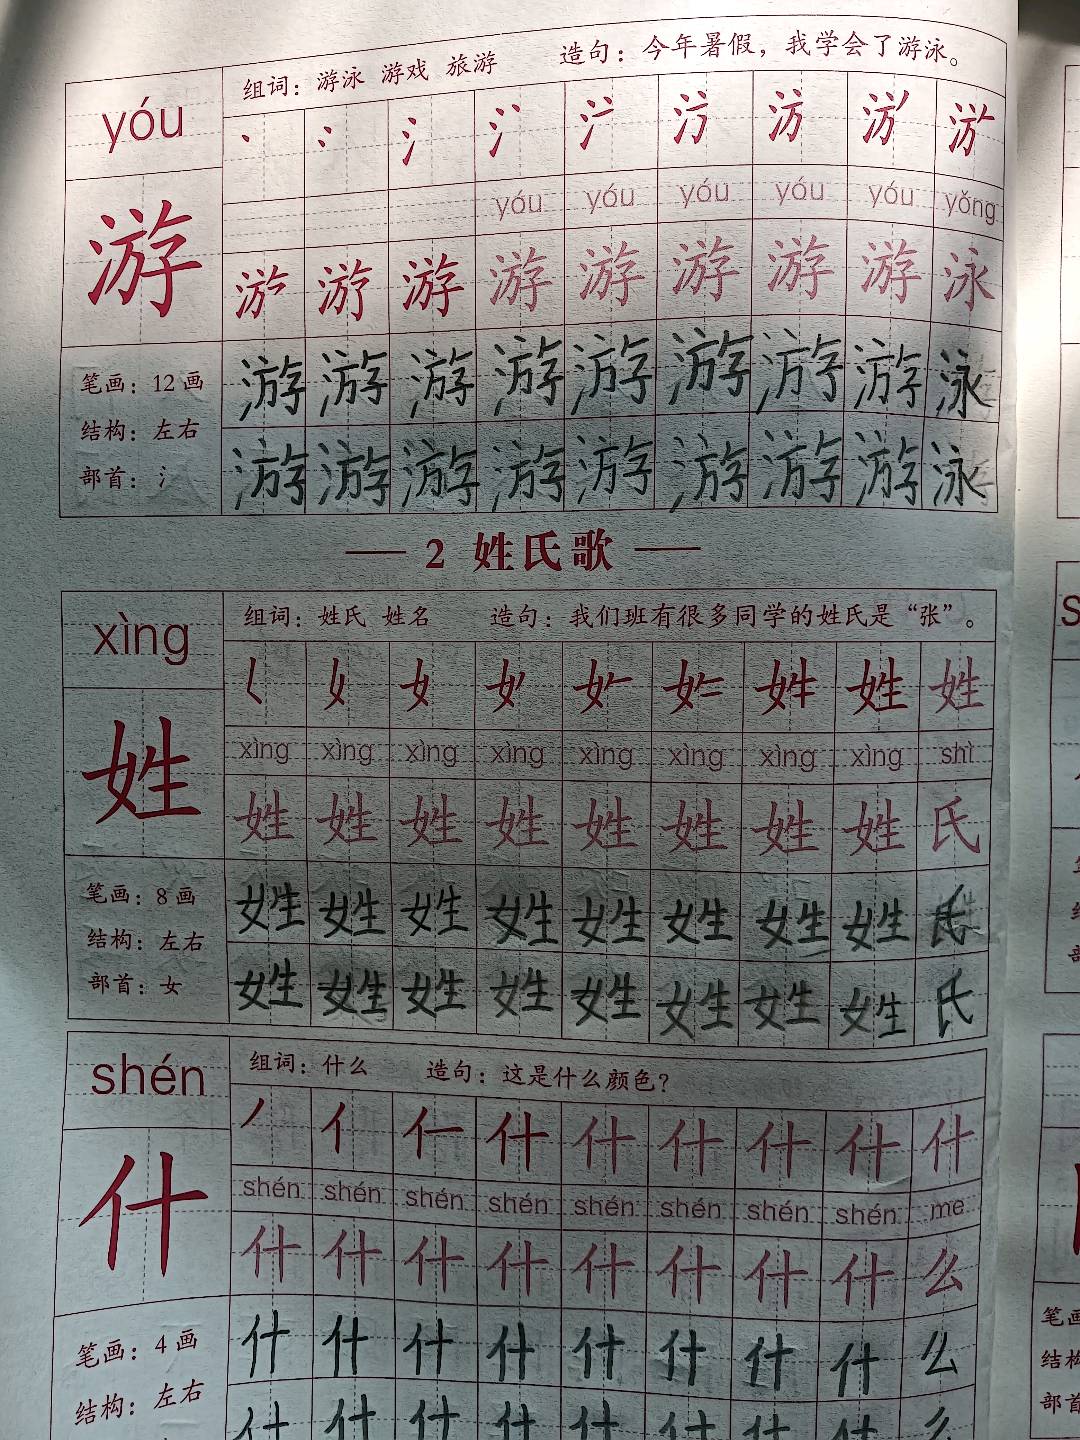 组词：游泳 游戏 旅游 造句：今年暑假，我学会了游泳。
yóu
丶 冫 氵
yóu yóu yóu yóu yóu yǒng
游
游 游 游 游 游 游 泳
笔画：12画
结构：左右
部首：氵
游 游 游 游 游 游 游 游 泳
游 游 游 游 游 游 游 游 泳
2 姓氏歌
组词：姓氏 姓名 造句：我们班有很多同学的姓氏是“张”。
xìng
女 姓 姓
xìng xìng xìng xìng xìng xìng xìng xìng shì
姓
姓 姓 姓 姓 姓 姓 姓 姓 氏
笔画：8画
结构：左右
部首：女
姓 姓 姓 姓 姓 姓 姓 姓 氏
姓 姓 姓 姓 姓 姓 姓 姓 氏
组词：什么 造句：这是什么颜色？
shén
丿 亻 什 什 什 什 什 什
shén shén shén shén shén shén shén shén me
什
什 什 什 什 什 什 什 什 么
笔画：4画
结构：左右
什 什 什 什 什 什 什 什 么